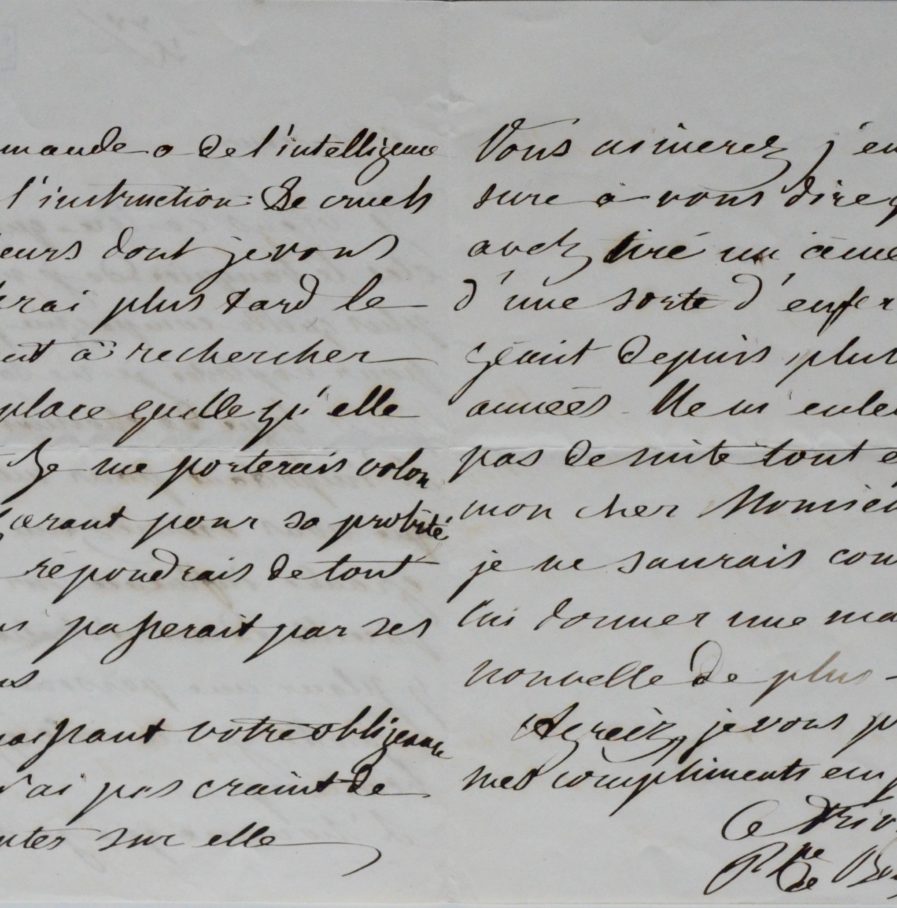 mande a de l'intelligence
l'instruction: De cruels
eurs dont je vous
erai plus tard le
nt à rechercher
place quelle qu'elle
Je me porterais volon
garant pour sa probité
répondrais de tout
i passerait par ses
ns
naissant votre obligeance
n'ai pas craint de
nter sur elle
Vous aimerez j'en
sure à vous dire q
avez tiré un âme
d'une sorte d'enfer
geait depuis plus
années. Ne m'enle
pas de suite tout e
mon cher Monsieu
je ne saurais com
lui donner une ma
nouvelle de plus -
Agréez, je vous p
mes compliments em
Ce
de